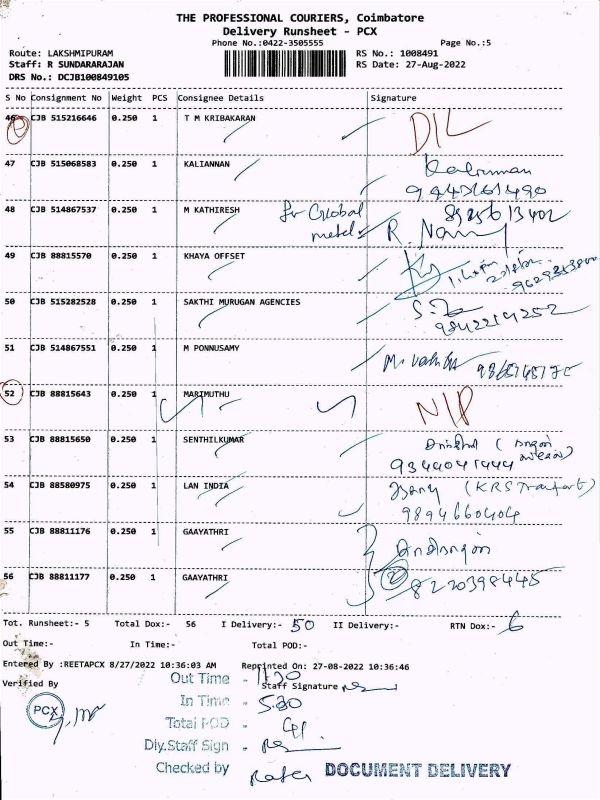 THE PROFESSIONAL COURIERS, Coimbatore
Delivery Runsheet - PCX
Phone No.:0422-3505555
Page No.:5
Route: LAKSHMIPURAM
Staff: R SUNDARARAJAN
DRS No.: DCJB100849105
RS No.: 1008491
RS Date: 27-Aug-2022
S No Consignment No Weight PCS Consignee Details Signature
46 CJB 515216646 0.250 1 T M KRIBAKARAN D/L
47 CJB 515068583 0.250 1 KALIANNAN
48 CJB 514867537 0.250 1 M KATHIRESH for Global metel 8925613402
49 CJB 88815570 0.250 1 KHAYA OFFSET
50 CJB 515282528 0.250 1 SAKTHI MURUGAN AGENCIES 9842214252
51 CJB 514867551 1 M PONNUSAMY
52 CJB 88815643 0.250 1 MARIMUTHU N/P
53 CJB 88815650 0.250 1 SENTHILKUMAR 9344041444
54 CJB 88580975 0.250 1 LAN INDIA (KRS Tranport)
9894660404
55 CJB 88811176 0.250 1 GAAYATHRI
56 CJB 88811177 0.250 1 GAAYATHRI 2 8220398445
Tot. Runsheet:- 5 Total Dox:- 56 I Delivery:- 50 II Delivery:- RTN Dox:- 6
Out Time:- In Time:- Total POD:-
Entered By :REETAPCX 8/27/2022 10:36:03 AM Reprinted On: 27-08-2022 10:36:46
Verified By
Staff Signature
PCX
Out Time - 11.30
In Time - 5.30
Total POD -
Dly.Staff Sign -
Checked by
DOCUMENT DELIVERY